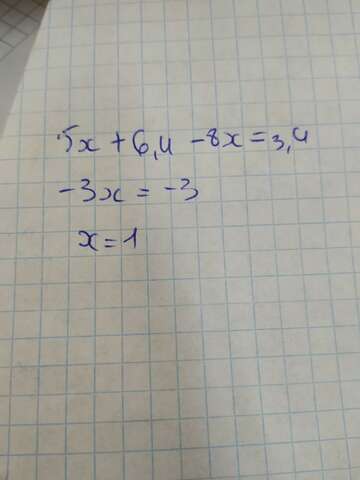 5x + 6,4 - 8x = 3,4
-3x = -3
x = 1